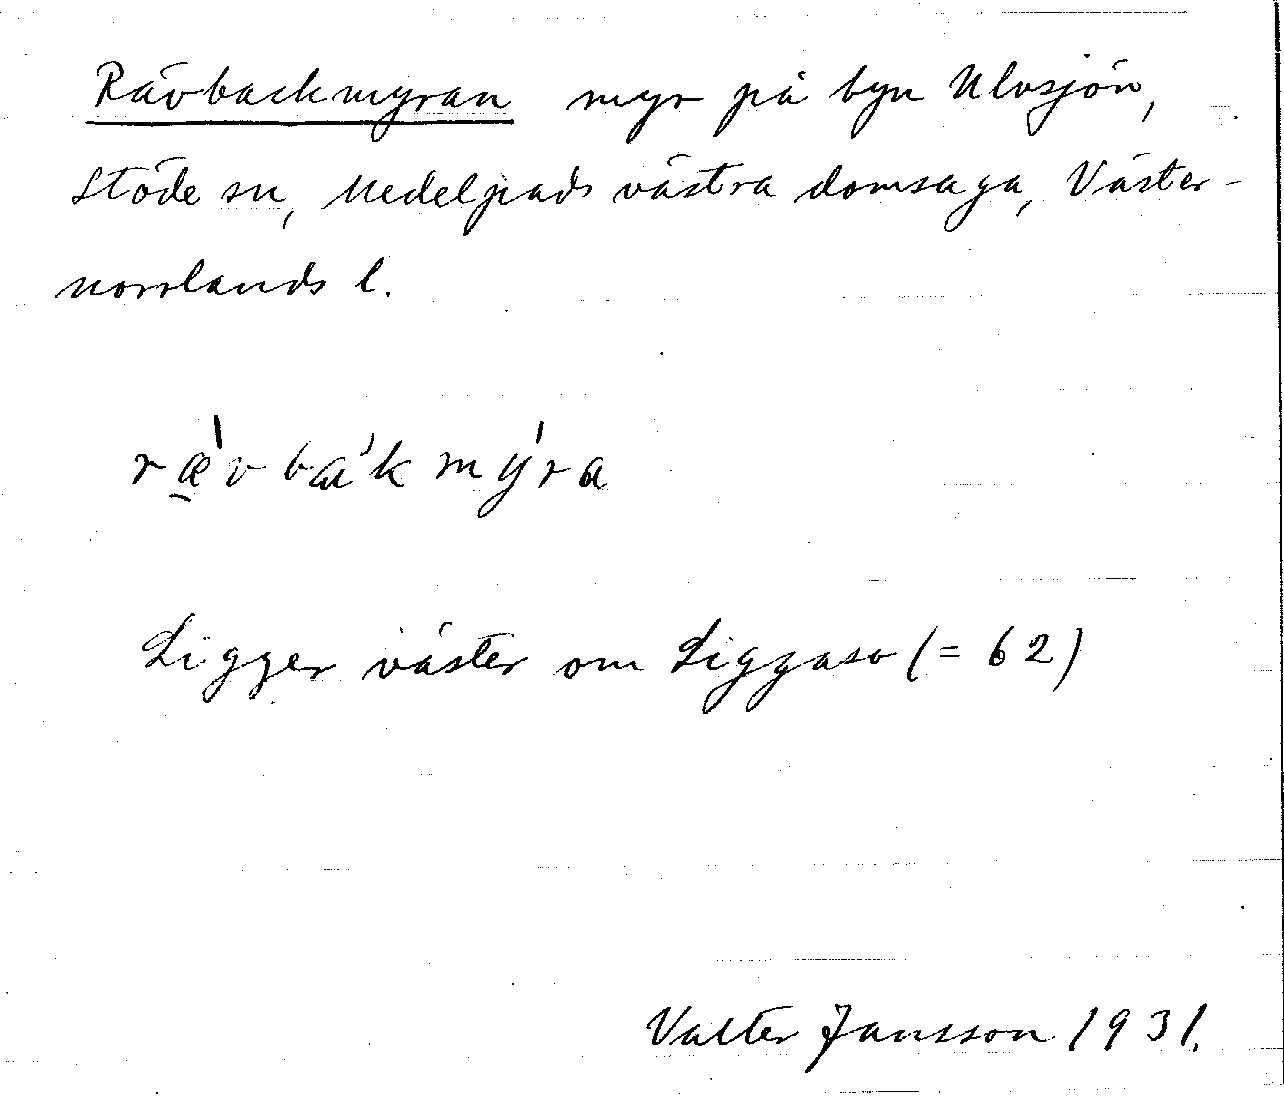 Rävbackmyran myr på byn Ulvsjön,
Stöde sn, Medelpads västra domsaga, Väster-
norrlands l.
rǽ̠vbakmýra
Ligger väster om Liggaso (= 62)
Valter Jansson 1931.